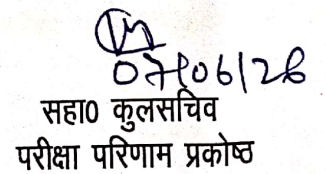 07/06/26
सहा0 कुलसचिव
परीक्षा परिणाम प्रकोष्ठ